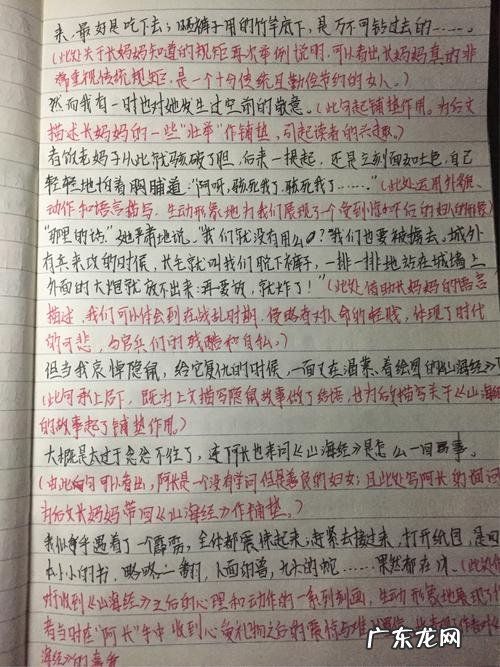 来，最好是吃下去；晒裤子用的竹竿底下，是万不可钻过去的……。
（此处关于长妈妈知道的规矩再次举例说明，可以看出长妈妈真的非
常重视传统规矩，是一个十分传统且勤俭节约的女人。）
然而我有一时也对她发生过空前的敬意。（此句起铺垫作用。为后文
描述长妈妈的一些“壮举”作铺垫，引起读者的兴趣。）
者的老妈子从此就骇破了胆，后来一提起，还是立刻面如土色，自己
轻轻地拍着胸脯道：“阿呀，骇死我了，骇死我了……”（此处运用外貌、
动作和语言描写，生动形象地为我们展现了一个受到惊吓后的妇人的
“那里的话”她严肃地说。“我们就没有用么？我们也要被掳去。城外
有兵来攻的时候，长毛就叫我们脱下裤子，一排一排地站在城墙上
外面的大炮就放不出来；再要放，就炸了！”（此处借助长妈妈的语言
描述，我们可以体会到在战乱时期，侵略者对人命的轻贱，体现了时代
的可悲，与官兵们的残酷和自私。）
但当我哀悼隐鼠，给它复仇的时候，一面又在渴慕着绘图的《山海经》
（此句承上启下，既为上文描写隐鼠故事做了结语，也为后文描写关于《山海经
的故事起了铺垫作用。）
大概是太过于念念不忘了，连阿长也来问《山海经》是怎么一回事。
（由此句可以看出，阿长是一个没有学问但是善良的妇女；且此处写阿长的询问
为后文长妈妈带回《山海经》作铺垫。）
我似乎遇着了一个霹雳，全体都震悚起来；赶紧去接过来，打开纸包，是四
本小小的书，略略一翻，人面的兽，九头的蛇……果然都在内。（此处
对收到《山海经》之后的心理和动作的一系列刻画，生动形象地展现了
者当时在“阿长”手中收到心爱礼物之后的震惊与
海经》的喜爱
广东龙网